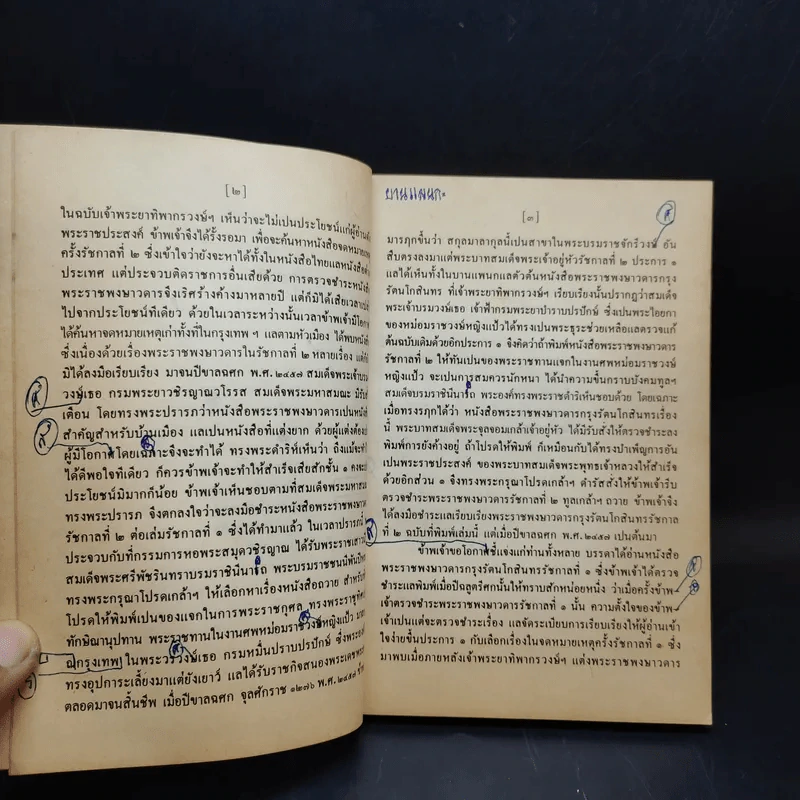 [๒]
ในฉบับเจ้าพระยาทิพากรวงษ์ฯ เห็นว่าจะไม่เปนประโยชน์แก่ผู้อ่าน
พระราชประสงค์ ข้าพเจ้าจึงได้รั้งรอมา เพื่อจะค้นหาหนังสือจดหมาย
ครั้งรัชกาลที่ ๒ ซึ่งเข้าใจว่ายังจะหาได้ทั้งในหนังสือไทยแลหนังสือ
ประเทศ แต่ประจวบติดราชการอื่นเสียด้วย การตรวจชำระหนังสือ
พระราชพงษาวดารจึงเริศร้างค้างมาหลายปี แต่ก็มิได้เสียเวลา
ไปจากประโยชน์ทีเดียว ด้วยในเวลาระหว่างนั้นเวลาข้าพเจ้ามีโอกาศ
ได้ค้นหาจดหมายเหตุเก่าทั้งที่ในกรุงเทพ ฯ แลตามหัวเมือง ได้พบหนังสือ
ซึ่งเนื่องด้วยเรื่องพระราชพงษาวดารในรัชกาลที่ ๒ หลายเรื่อง แต่ก็
มิได้ลงมือเรียบเรียง มาจนปีขาลฉศก พ.ศ. ๒๔๕๗ สมเด็จพระเจ้าบรม
วงษ์เธอ กรมพระยาวชิรญาณวโรรส สมเด็จพระมหาสมณะ
เตือน โดยทรงพระปรารภว่าหนังสือพระราชพงษาวดารเปนหนังสือ
สำคัญสำหรับบ้านเมือง แลเปนหนังสือที่แต่งยาก ด้วยผู้แต่งต้อง
ผู้มีโอกาศโดยเฉภาะจึงจะทำได้ ทรงพระดำริห์เห็นว่า ถึงแม้จะทำ
ได้ดีพอใจทีเดียว ก็ควรข้าพเจ้าจะทำให้สำเร็จเสียสักชั้น ๑ คงจะ
ประโยชน์มิมากก็น้อย ข้าพเจ้าเห็นชอบตามที่สมเด็จพระมหาสมณ
ทรงพระปรารภ จึงตกลงใจว่าจะลงมือชำระหนังสือพระราชพงษาวดาร
รัชกาลที่ ๒ ต่อเล่มรัชกาลที่ ๑ ซึ่งได้ทำมาแล้ว ในเวลาปรารภนี้
ประจวบกับที่กรรมการหอพระสมุดวชิรญาณ ได้รับพระราชเสาวนี
สมเด็จพระศรีพัชรินทราบรมราชินีนารถ พระบรมราชชนนีพันปีหลวง
ทรงพระกรุณาโปรดเกล้าฯ ให้เลือกหาเรื่องหนังสือถวาย สำหรับ
โปรดให้พิมพ์เปนของแจกในการพระราชกุศล ทรงพระราชูทิศ
ทักษิณานุปทาน พระราชทานในงานศพหม่อมราชวงษ์หญิงแป้ว
ณกรุงเทพ ในพระวรวงษ์เธอ กรมหมื่นปราบปรปักษ์ ซึ่งพระองค์
ทรงอุปการะเลี้ยงมาแต่ยังเยาว์ แลได้รับราชกิจสนองพระเดชพระคุณ
ตลอดมาจนสิ้นชีพ เมื่อปีขาลฉศก จุลศักราช ๑๒๗๖ พ.ศ. ๒๔๕๗
บานแผนก
[๓]
มารฦกขึ้นว่า สกุลมาลากุลนี้เปนสาขาในพระบรมราชจักรีวงษ์ อัน
สืบตรงลงมาแต่พระบาทสมเด็จพระเจ้าอยู่หัวรัชกาลที่ ๒ ประการ ๑
แลได้เห็นทั้งในบานแพนกแลตัวต้นหนังสือพระราชพงษาวดารกรุง
รัตนโกสินทร ที่เจ้าพระยาทิพากรวงษ์ฯ เรียบเรียงนั้นปรากฏว่าสมเด็จ
พระเจ้าบรมวงษ์เธอ เจ้าฟ้ากรมพระยาบำราบปรปักษ์ ซึ่งเปนพระไอยกา
ของหม่อมราชวงษ์หญิงแป้วได้ทรงเปนพระธุระช่วยเหลือแลตรวจแก้
ต้นฉบับเดิมด้วยอิกประการ ๑ จึงคิดว่าถ้าพิมพ์หนังสือพระราชพงษาวดาร
รัชกาลที่ ๒ ให้ทันเปนของพระราชทานแจกในงานศพหม่อมราชวงษ์
หญิงแป้ว จะเปนการสมควรนักหนา ได้นำความขึ้นกราบบังคมทูลฯ
สมเด็จบรมราชินีนารถ พระองค์ทรงพระดำริห์เห็นชอบด้วย โดยเฉภาะ
เมื่อทรงรฦกได้ว่า หนังสือพระราชพงษาวดารกรุงรัตนโกสินทรเรื่อง
นี้ พระบาทสมเด็จพระจุลจอมเกล้าเจ้าอยู่หัว ได้มีรับสั่งให้ตรวจชำระลง
พิมพ์การยังค้างอยู่ ถ้าโปรดให้พิมพ์ ก็เหมือนกับได้ทรงบำเพ็ญการอัน
เปนพระราชประสงค์ ของพระบาทสมเด็จพระพุทธเจ้าหลวงให้สำเร็จ
ด้วยอิกส่วน ๑ จึงทรงพระกรุณาโปรดเกล้าฯ ดำรัสสั่งให้ข้าพเจ้ารีบ
ตรวจชำระพระราชพงษาวดารรัชกาลที่ ๒ ทูลเกล้าฯ ถวาย ข้าพเจ้าจึง
ได้ลงมือชำระแลเรียบเรียงพระราชพงษาวดารกรุงรัตนโกสินทรรัชกาล
ที่ ๒ ฉบับที่พิมพ์เล่มนี้ แต่เมื่อปีขาลฉศก พ.ศ. ๒๔๕๗ เปนต้นมา
ข้าพเจ้าขอโอกาศชี้แจงแก่ท่านทั้งหลาย บรรดาได้อ่านหนังสือ
พระราชพงษาวดารกรุงรัตนโกสินทรรัชกาลที่ ๑ ซึ่งข้าพเจ้าได้ตรวจ
ชำระแลพิมพ์เมื่อปีฉลูตรีศกนั้นให้ทราบสักหน่อยหนึ่ง ว่าเมื่อครั้งข้าพ
เจ้าตรวจชำระพระราชพงษาวดารรัชกาลที่ ๑ นั้น ความตั้งใจของข้าพ
เจ้าเปนแต่จะตรวจชำระเรื่อง แลจัดระเบียบการเรียบเรียงให้ผู้อ่านเข้า
ใจง่ายขึ้นประการ ๑ กับเลือกเรื่องในจดหมายเหตุครั้งรัชกาลที่ ๑ ซึ่ง
มาพบเมื่อภายหลังเจ้าพระยาทิพากรวงษ์ฯ แต่งพระราชพงษาวดาร